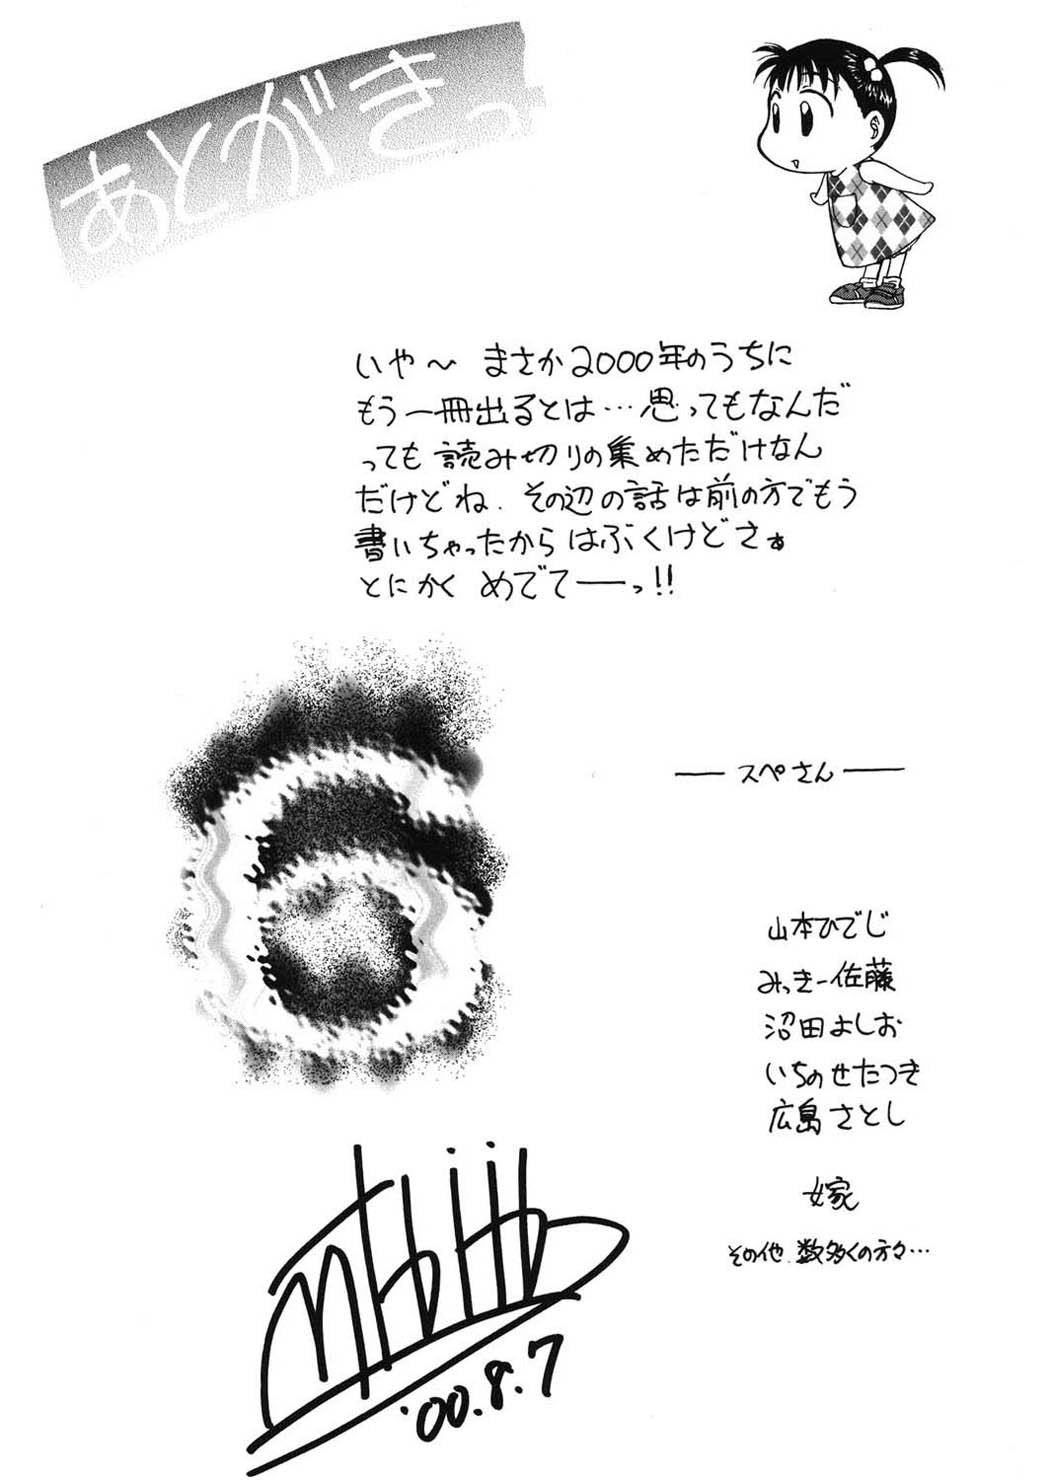 あとがきっ
いや〜 まさか2000年のうちに
もう一冊出るとは…思ってもなんだ
っても読み切りの集めただけなん
だけどね、その辺の話は前の方でもう
書いちゃったからはぶくけどさぁ
とにかく めでてーっ!!
— スペさん —
山本ひでじ
みっきー佐藤
沼田よしお
いちのせたつき
広島さとし
嫁
その他、数多くの方々…
'00.8.7